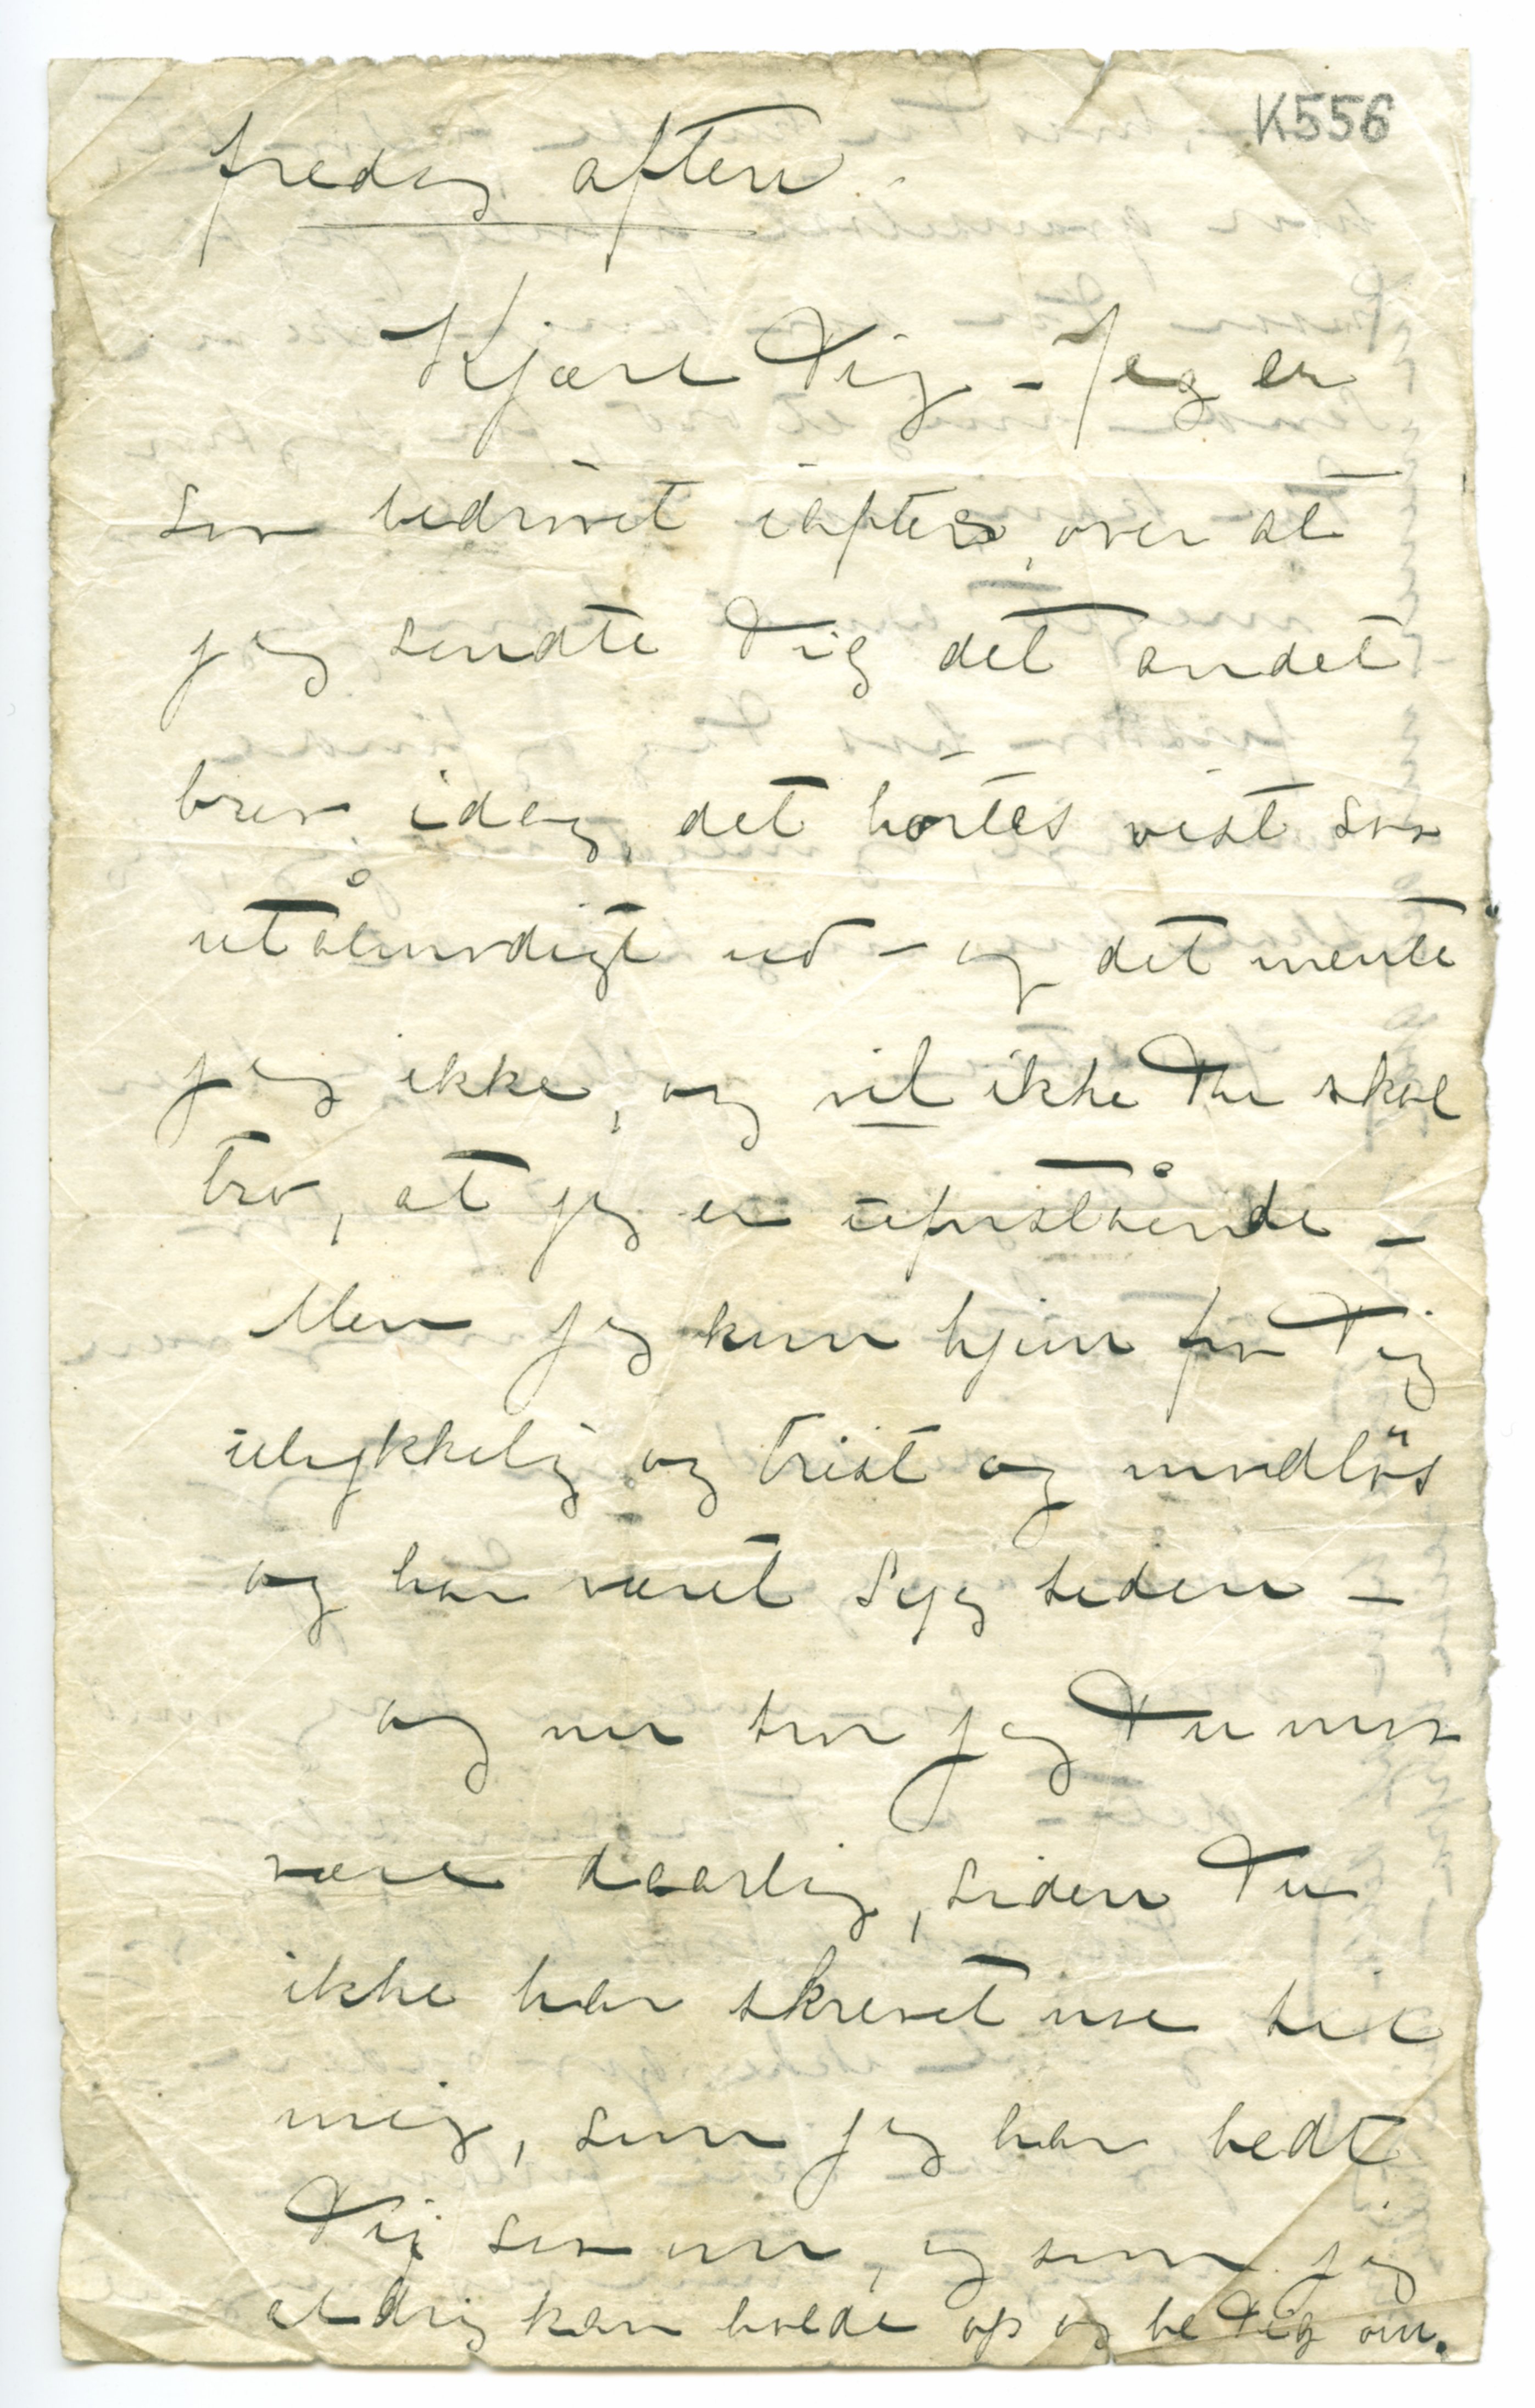 K556
fredag aften.
Kjære Dig – Jeg er
saa bedrøvet iaften, over at
jeg sendte Dig det andet
brev idag, det hørtes vist saa
utålmodigt ud – og det mente
jeg ikke, og vil ikke Du skal
tro, at jeg er uforstående –
Men jeg kom hjem fra Dig
ulykkelig og trist og modløs
og har været syg siden –
og nu tror jeg Du maa
være daarlig, siden Du
ikke har skrevet noe til
mig, som jeg har bedt
Dig saa om, og som jeg
aldrig kan holde op og be Dig om.